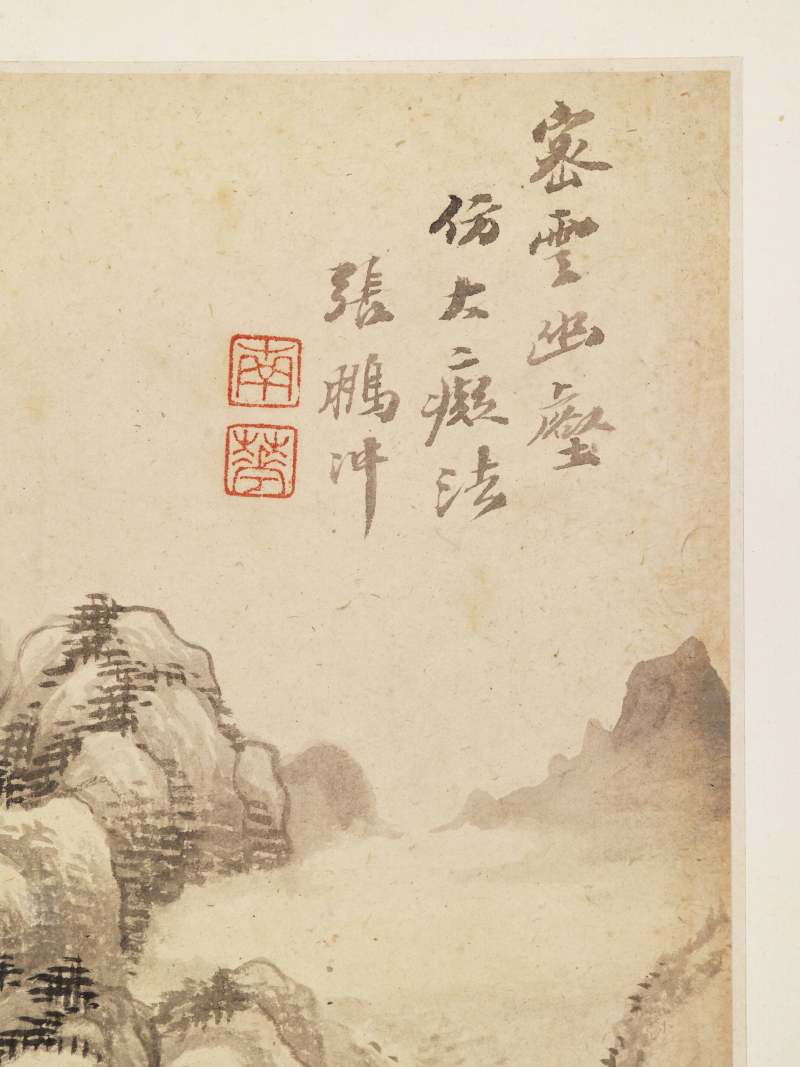 密雲幽壑
仿大癡法
張鵬冲
南
華